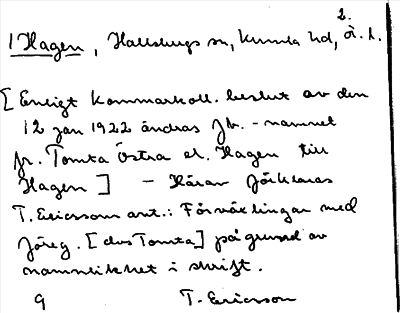 2.
1 Hagen, Hallsbergs sn, Kumla hd, Ö. l.
[Enligt Kammarkoll. beslut av den
12 jan 1922 ändras jb.-namnet
fr. Tomta Östra el. Hagen till
Hagen] - Härav förklaras
T. Ericsson ant.: Förväxlingar med
föreg. [dvs Tomta] på grund av
namnlikhet i skrift.
9 T. Ericsson